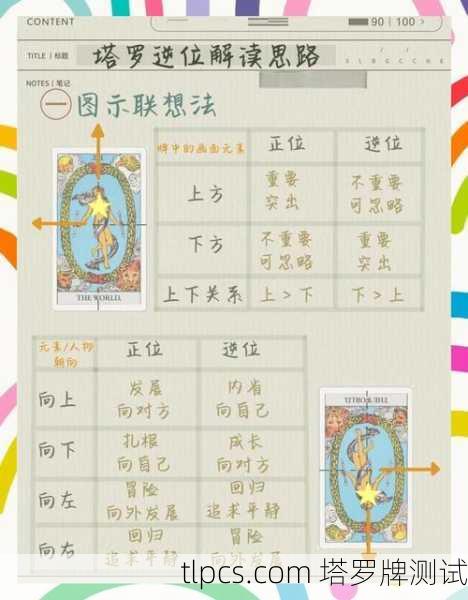 CONTENT
90 | 100 >
TITLE | 标题
塔罗逆位解读思路
NOTES | 笔记
一 图示联想法
牌中的画面元素 正位 逆位
上方 重要 突出 不重要 可忽略
下方 不重要 可忽略 重要 突出
上下关系 上 > 下 下 > 上
THE WORLD.
元素/人物 朝向 正位 逆位
向上 发展 向对方 内省 向自己
向下 扎根 向自己 成长 向对方
向左 冒险 向外发展 回归 追求平静
向右 回归 追求平静 冒险 向外发展
THE WORLD.
tlpcs.com 塔罗牌测试